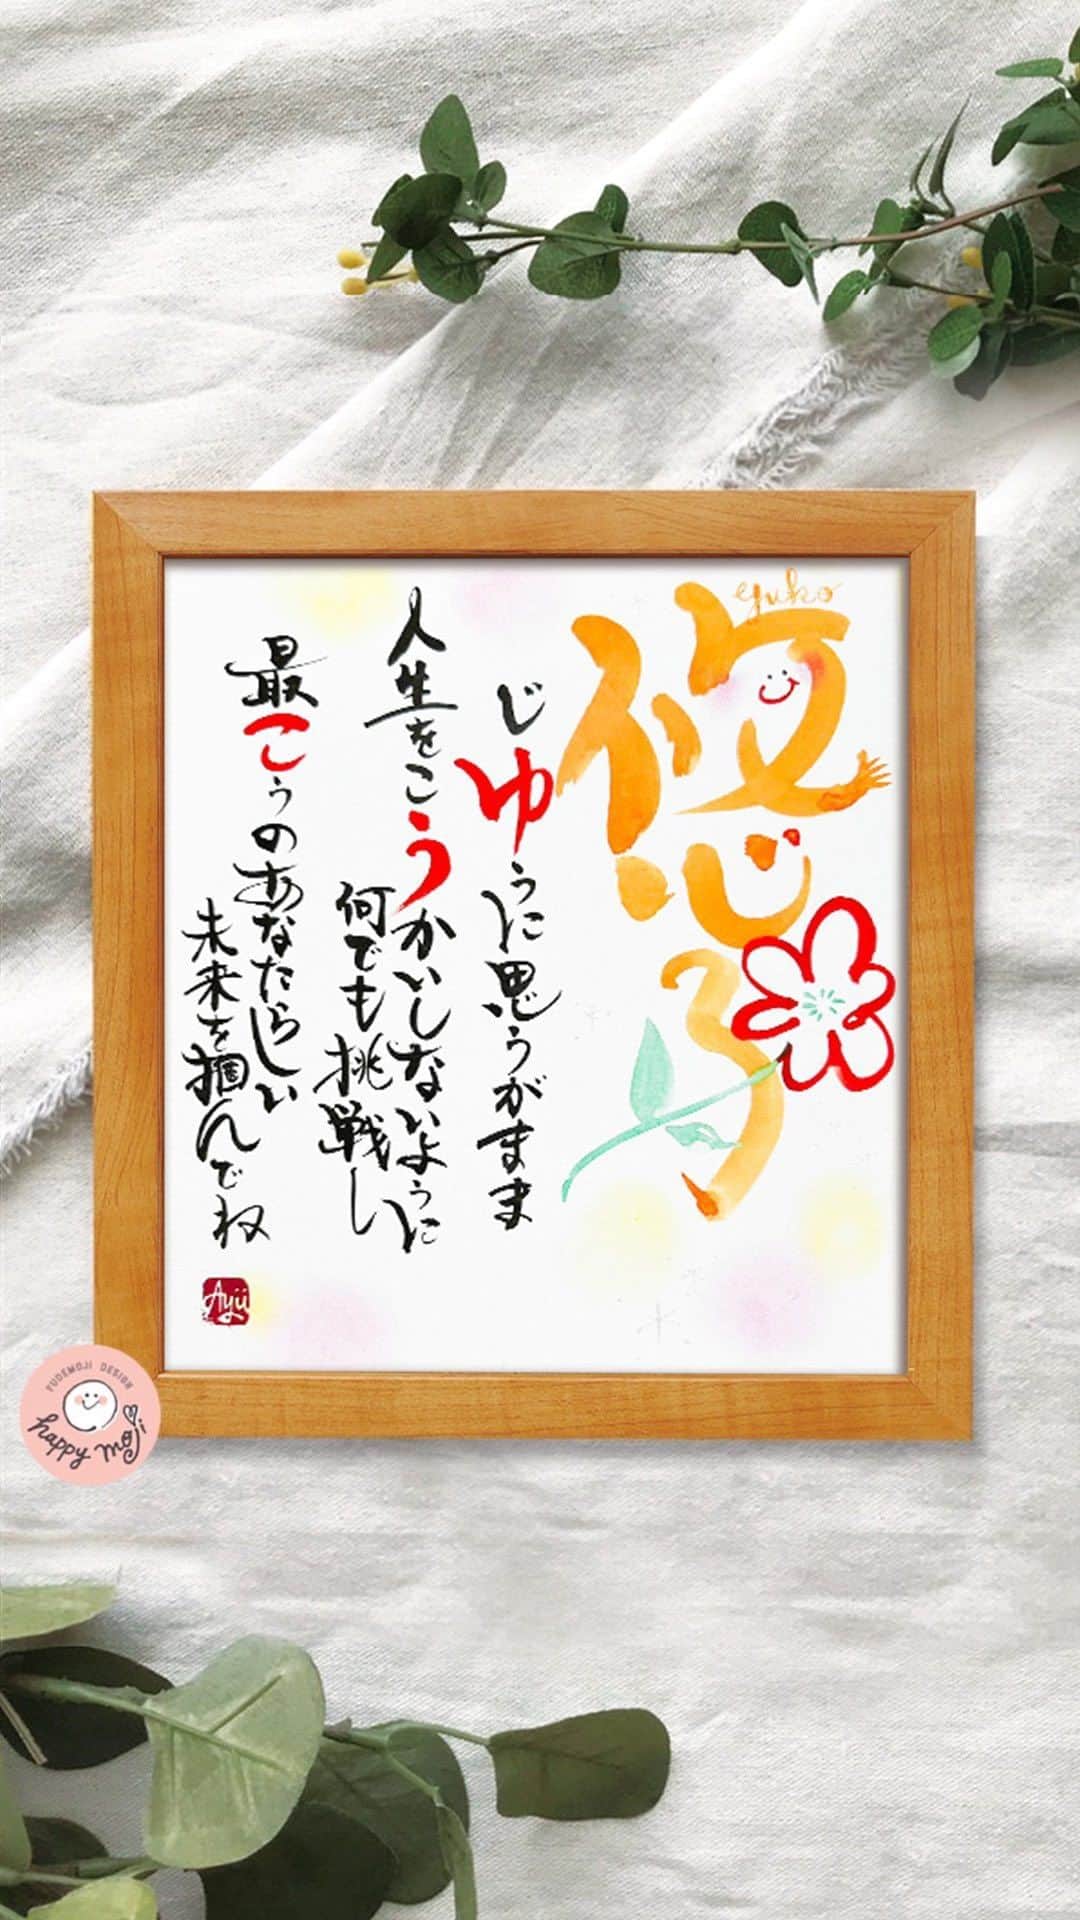 yuko
悠子
じゆうに思うがまま
人生をこうかいしないように
何でも挑戦し
最こうのあなたらしい
未来を掴んでね
Ayü
FUDEMOJI DESIGN
happy moji